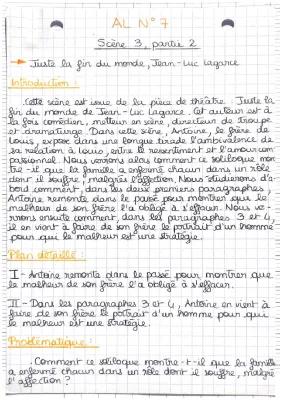 AL N°7
Scène 3, partie 2
→ Juste la fin du monde, Jean-Luc Lagarce
Introduction :
Cette scène est issue de la pièce de théâtre Juste la
fin du monde de Jean-Luc Lagarce. Cet auteur est à
la fois comédien, metteur en scène, directeur de troupe
et dramaturge. Dans cette scène, Antoine, le frère de
Louis, expose dans une longue tirade l'ambivalence de
sa relation à Louis, entre le ressentiment et l'amour com
passionnel. Nous verrons alors comment ce soliloque mon
tre-il que la famille a enfermé chacun dans un rôle
dont il souffre, malgré l'affection. Nous étudierons d'a
bord comment, dans les deux premiers paragraphes,
Antoine remonte dans le passé pour montrer que le
malheur de son frère l'a obligé à s'effacer. Nous ve-
rrons ensuite comment, dans les paragraphes 3 et 4,
il en vient à faire de son frère le portrait d'un homme
pour qui le malheur est une stratégie.
Plan détaillé :
I - Antoine remonte dans le passé pour montrer que
le malheur de son frère l'a obligé à s'effacer.
II - Dans les paragraphes 3 et 4, Antoine en vient à
faire de son frère le portrait d'un homme pour qui
le malheur est une stratégie.
Problématique :
Comment ce soliloque montre-t-il que la famille
a enfermé chacun dans un rôle dont il souffre, malgré
l'affection ?